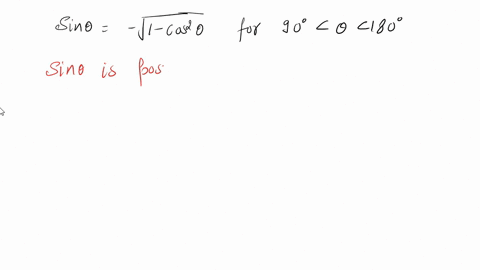 Sinθ = -√(1-Cos²θ) for 90° < θ < 180°
Sinθ is pos